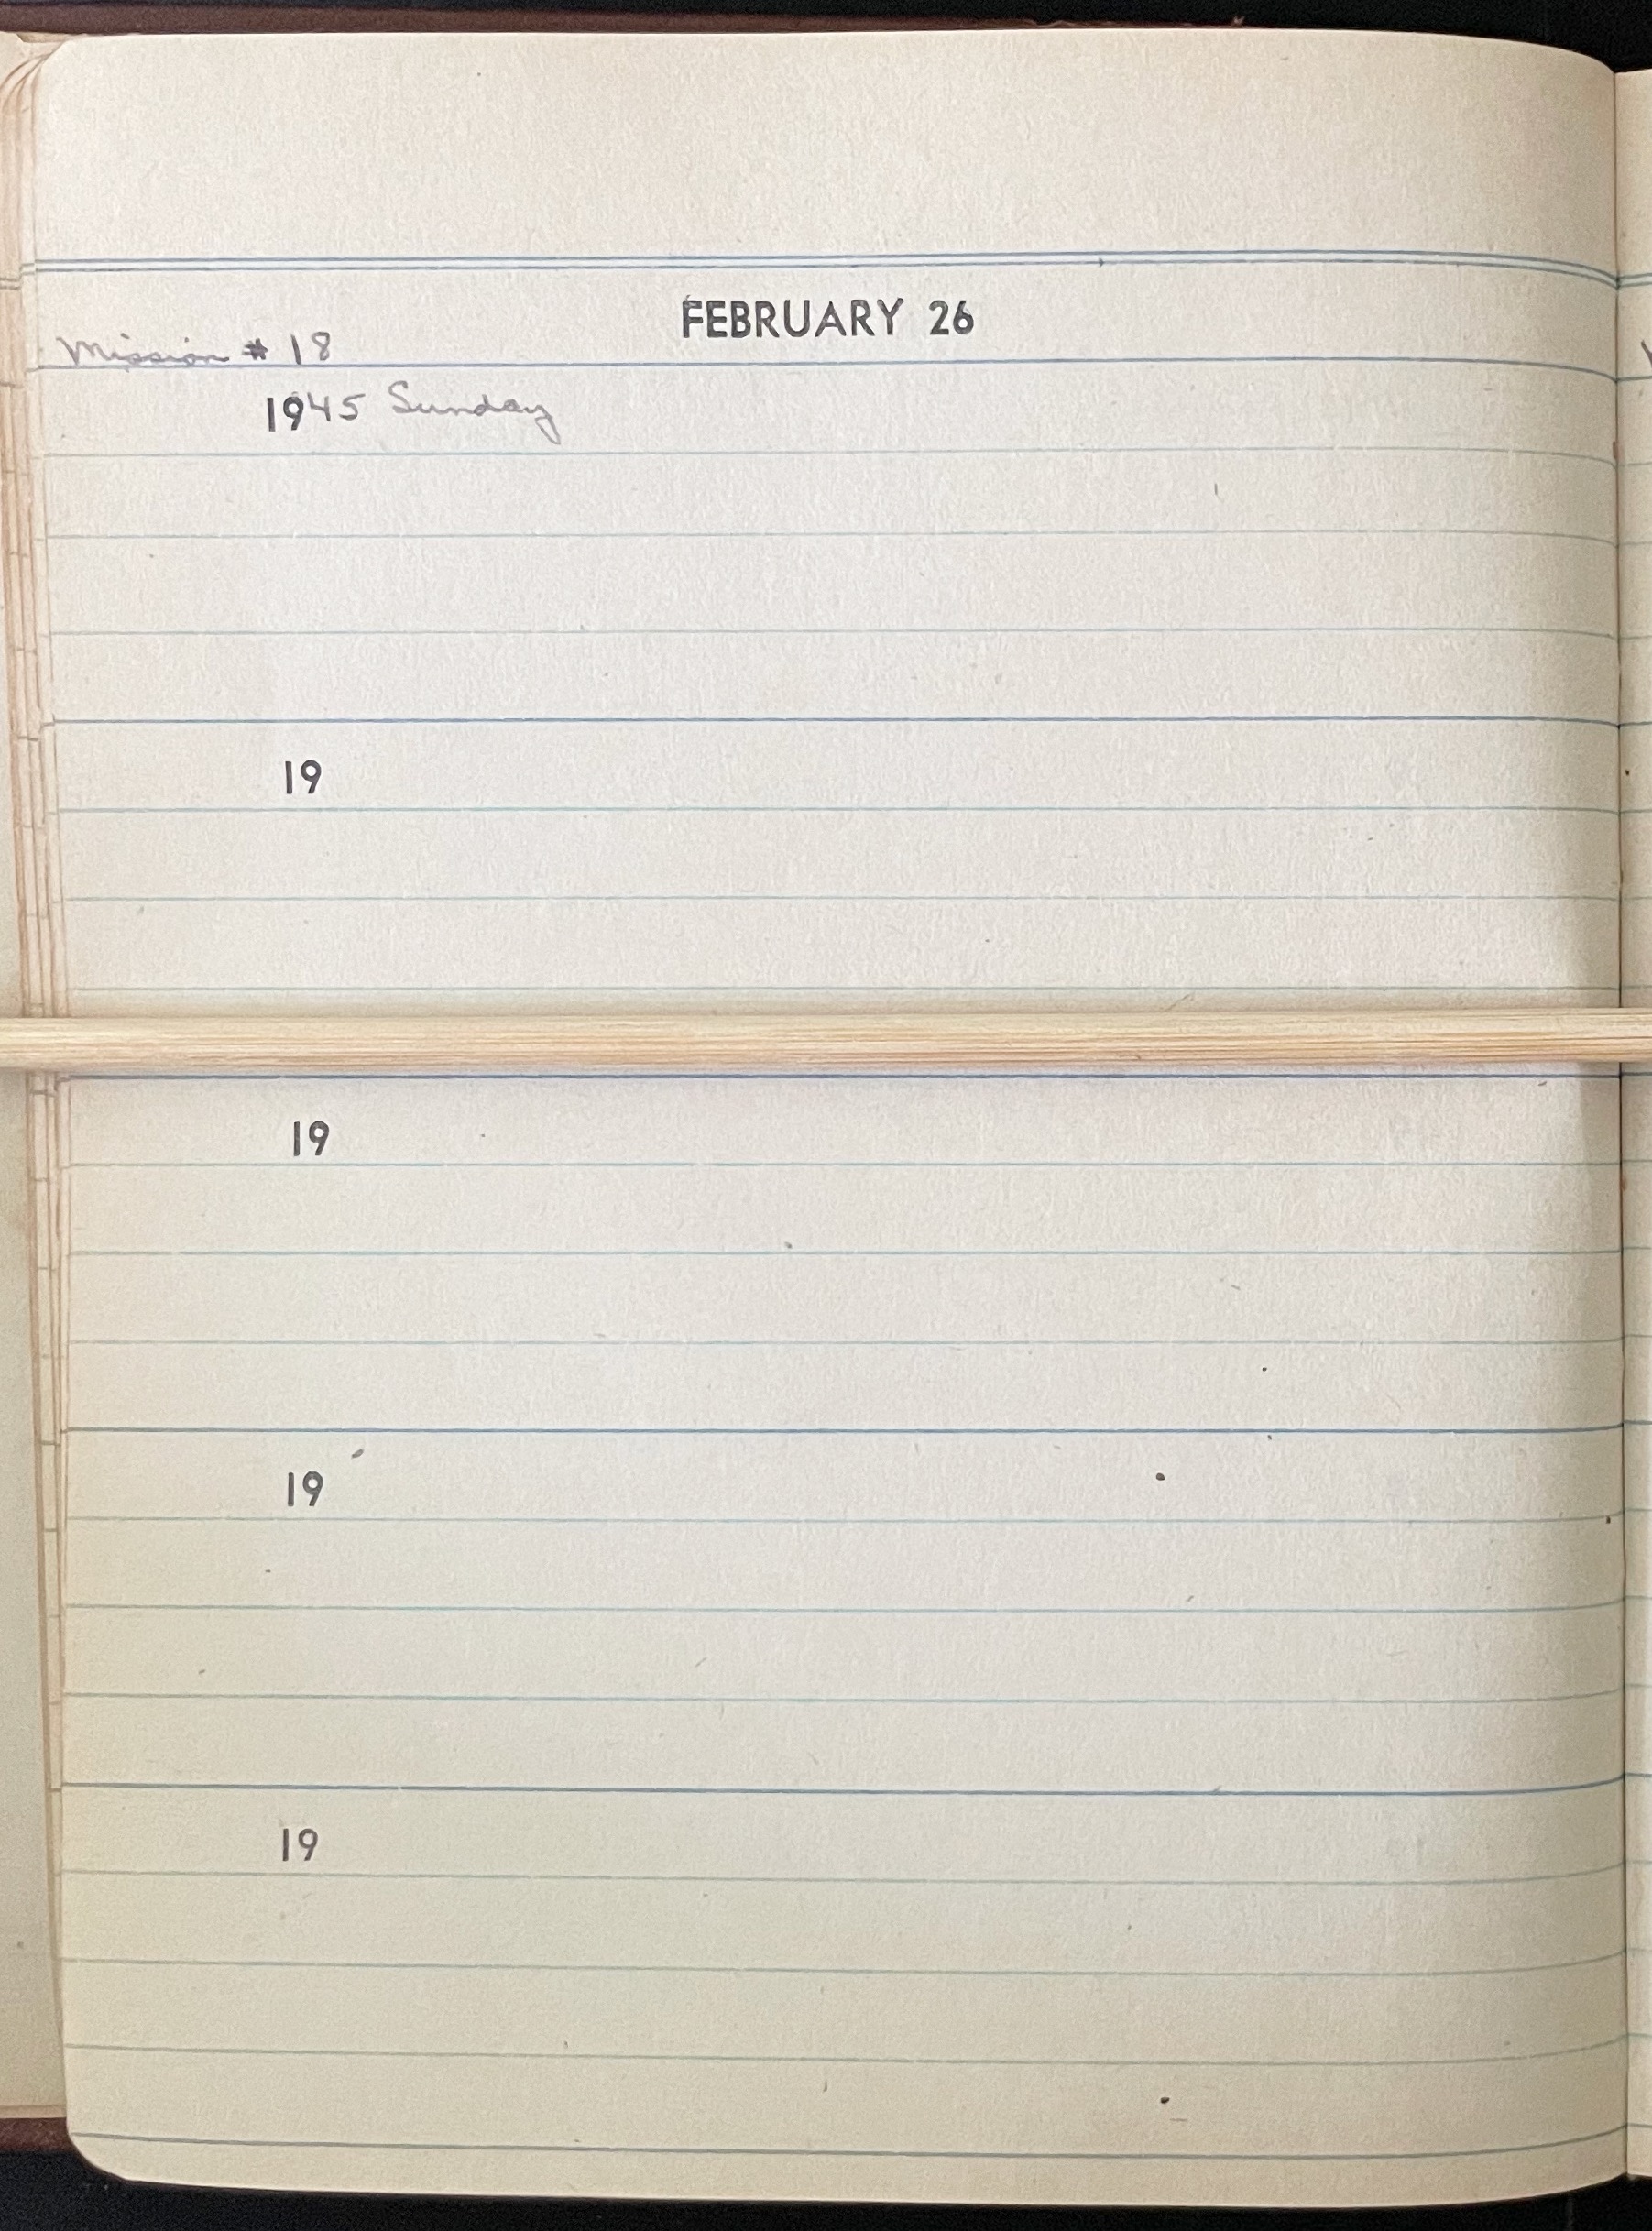 FEBRUARY 26
Mission # 18
1945 Sunday
19
19
19
19